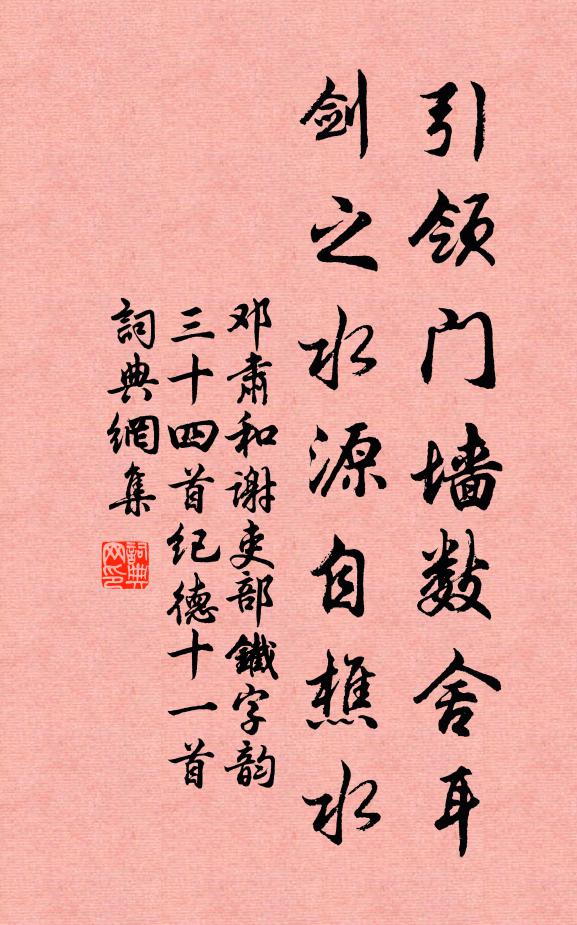 引领门墙数舍耳
剑之水源自樵水
邓肃和谢吏部鐵字韵
三十四首纪德十一首
詞典網集
詞典
网印